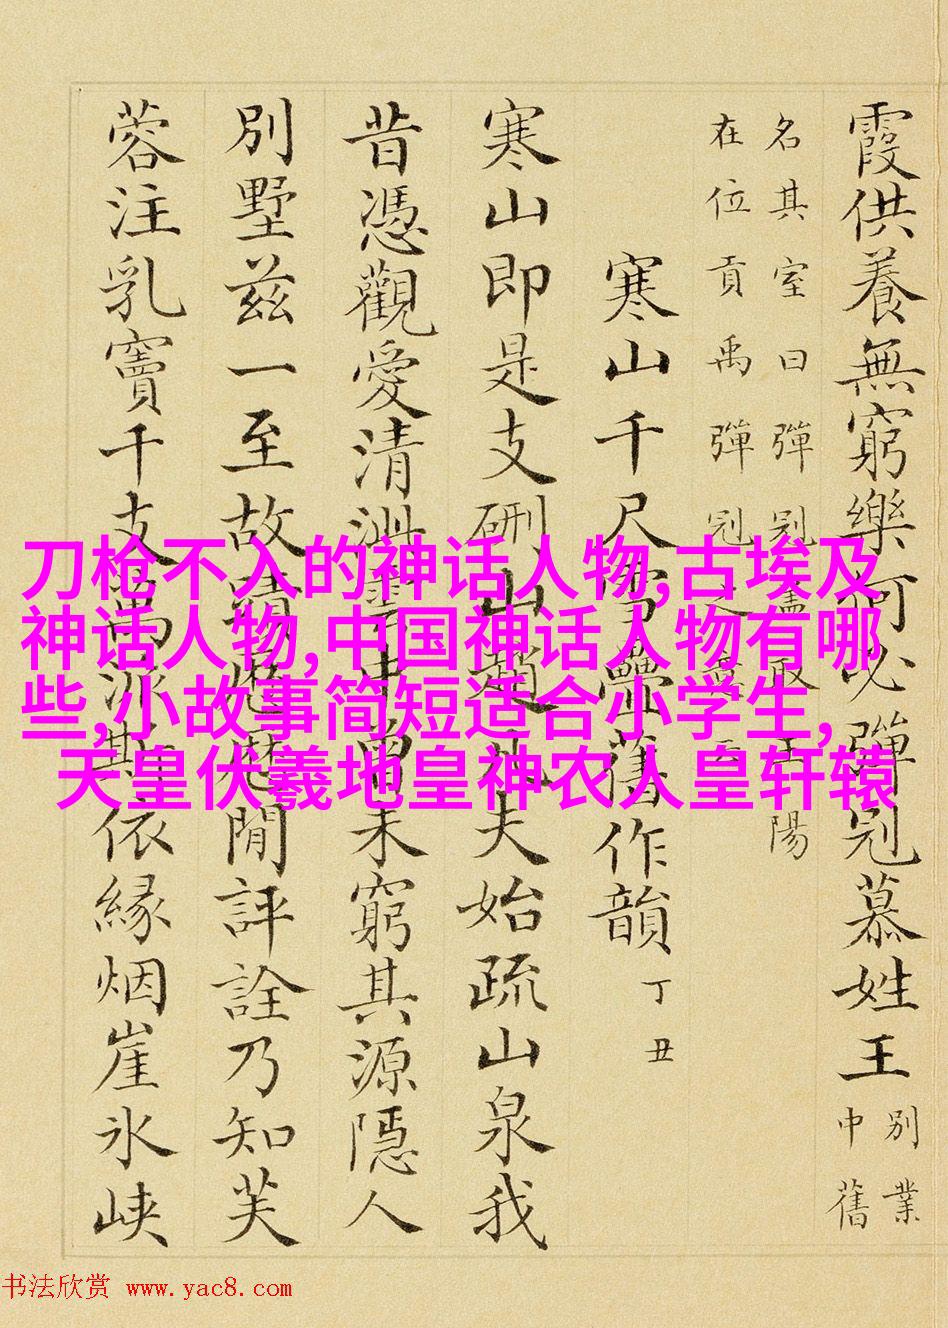 霞供養無窮樂何必彈冠慕姓王
別業
中舊
名其室曰彈冠盖取王陽
在位貢禹彈冠之義云
寒山千尺雪疊舊作韻
丁丑
寒山即是支硎山趙凡夫始疏山泉我
昔憑觀愛清雪中曾未窮其源隱人
別墅茲一至故蹟歷歷閒評詮乃知芙
蓉注乳竇千支萬派斯依緣烟崖氷峽
刀枪不入的神话人物,古埃及
神话人物,中国神话人物有哪
些,小故事简短适合小学生,
天皇伏羲地皇神农人皇轩辕
书法欣赏 www.yac8.com